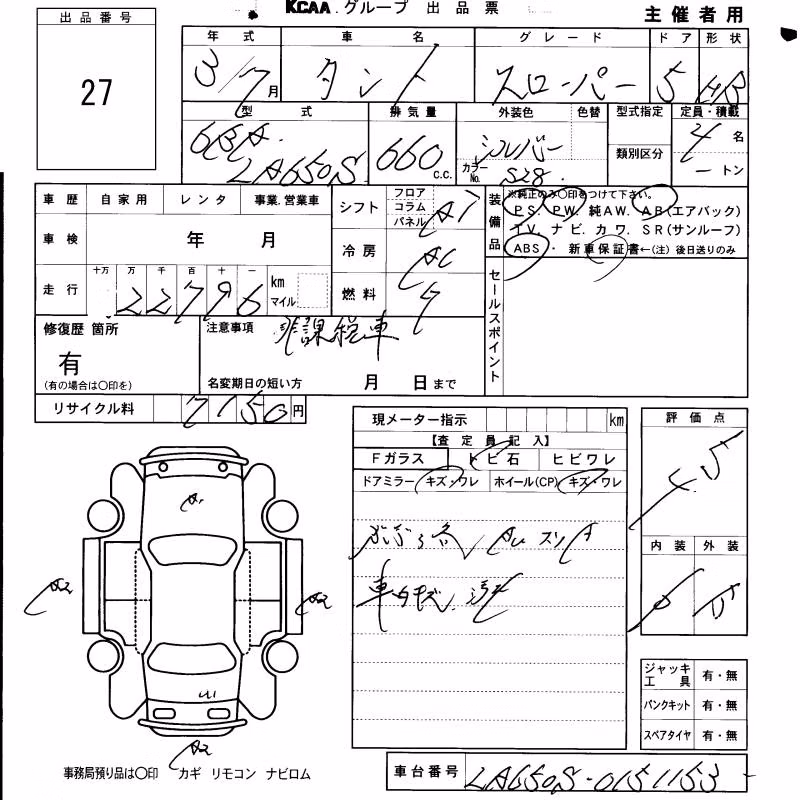 KCAA グループ 出品票
主催者用
出品番号
27
年式 車名 グレード ドア 形状
3/7月 タント スローパー 5 HB
型式 排気量 外装色 色替 型式指定 定員・積載
6BA- LA650S 660 C.C. シルバー カラーNo. S28 類別区分 4名
ートン
車歴 自家用 レンタ 事業.営業車
車検 年 月
走行 十万 万 千 百 十 一
22796 km マイル
シフト フロア コラム パネル AT
冷房 AC
燃料
装備品 ※純正のみ〇印をつけて下さい。
PS. PW. 純AW. AB(エアバック)
TV. ナビ. カワ. SR(サンルーフ)
ABS ・ 新車保証書←(注) 後日送りのみ
セールスポイント
修復歴 箇所
有
(有の場合は〇印を)
注意事項 非課税車
名変期日の短い方 月 日まで
リサイクル料 7150円
現メーター指示 km
【査定員記入】
Fガラス トビ石 ヒビワレ
ドアミラー キズ・ワレ ホイール(CP) キズ・ワレ
車内キズ、汚れ
評価点
4.5
内装 外装
A1
A2
A2
A2
ジャッキ工具 有・無
パンクキット 有・無
スペアタイヤ 有・無
事務局預り品は〇印 カギ リモコン ナビロム
車台番号 LA650S-0151153